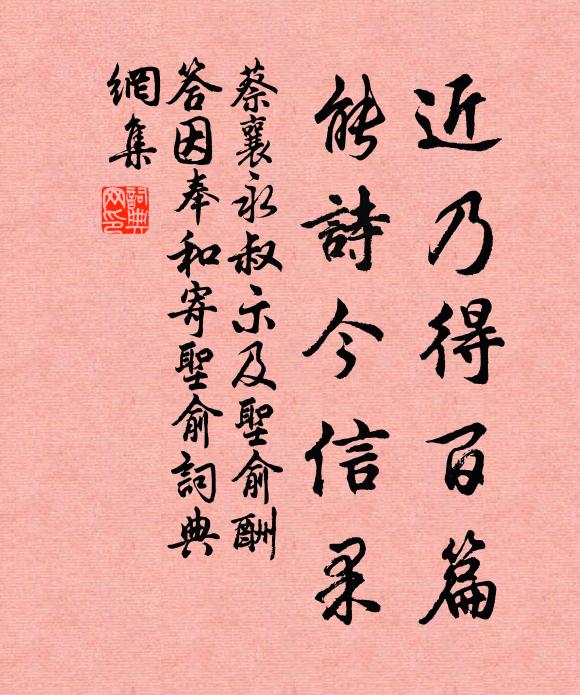 近乃得百篇
能詩今信果
蔡襄永叔示及聖俞酬
答因奉和寄聖俞詞典
網集
詞典
网印